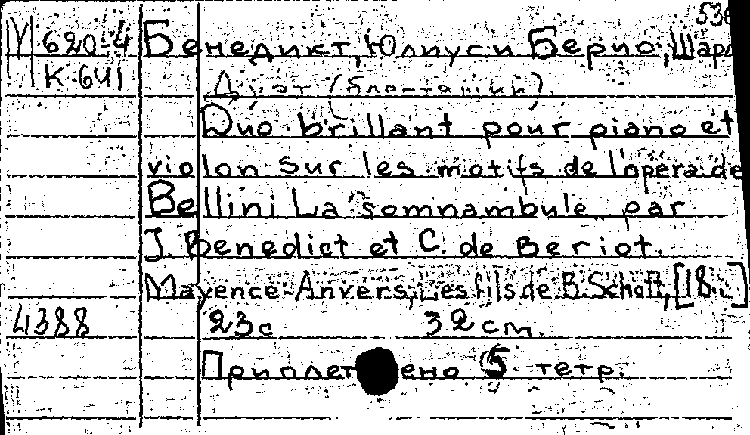 536
М 620-4 Бенедикт, Юлиус и Берио, Шарл
К-641 Дуэт (блестящий).
Duo brillant pour piano et
violon sur les motifs de l'opéra de
Bellini La somnambule par
J. Benedict et C. de Beriot.
Mayence-Anvers, Les fils de B. Schott, [18 ]
4388 23 с 32 cm.
Приплетено 5 тетр.